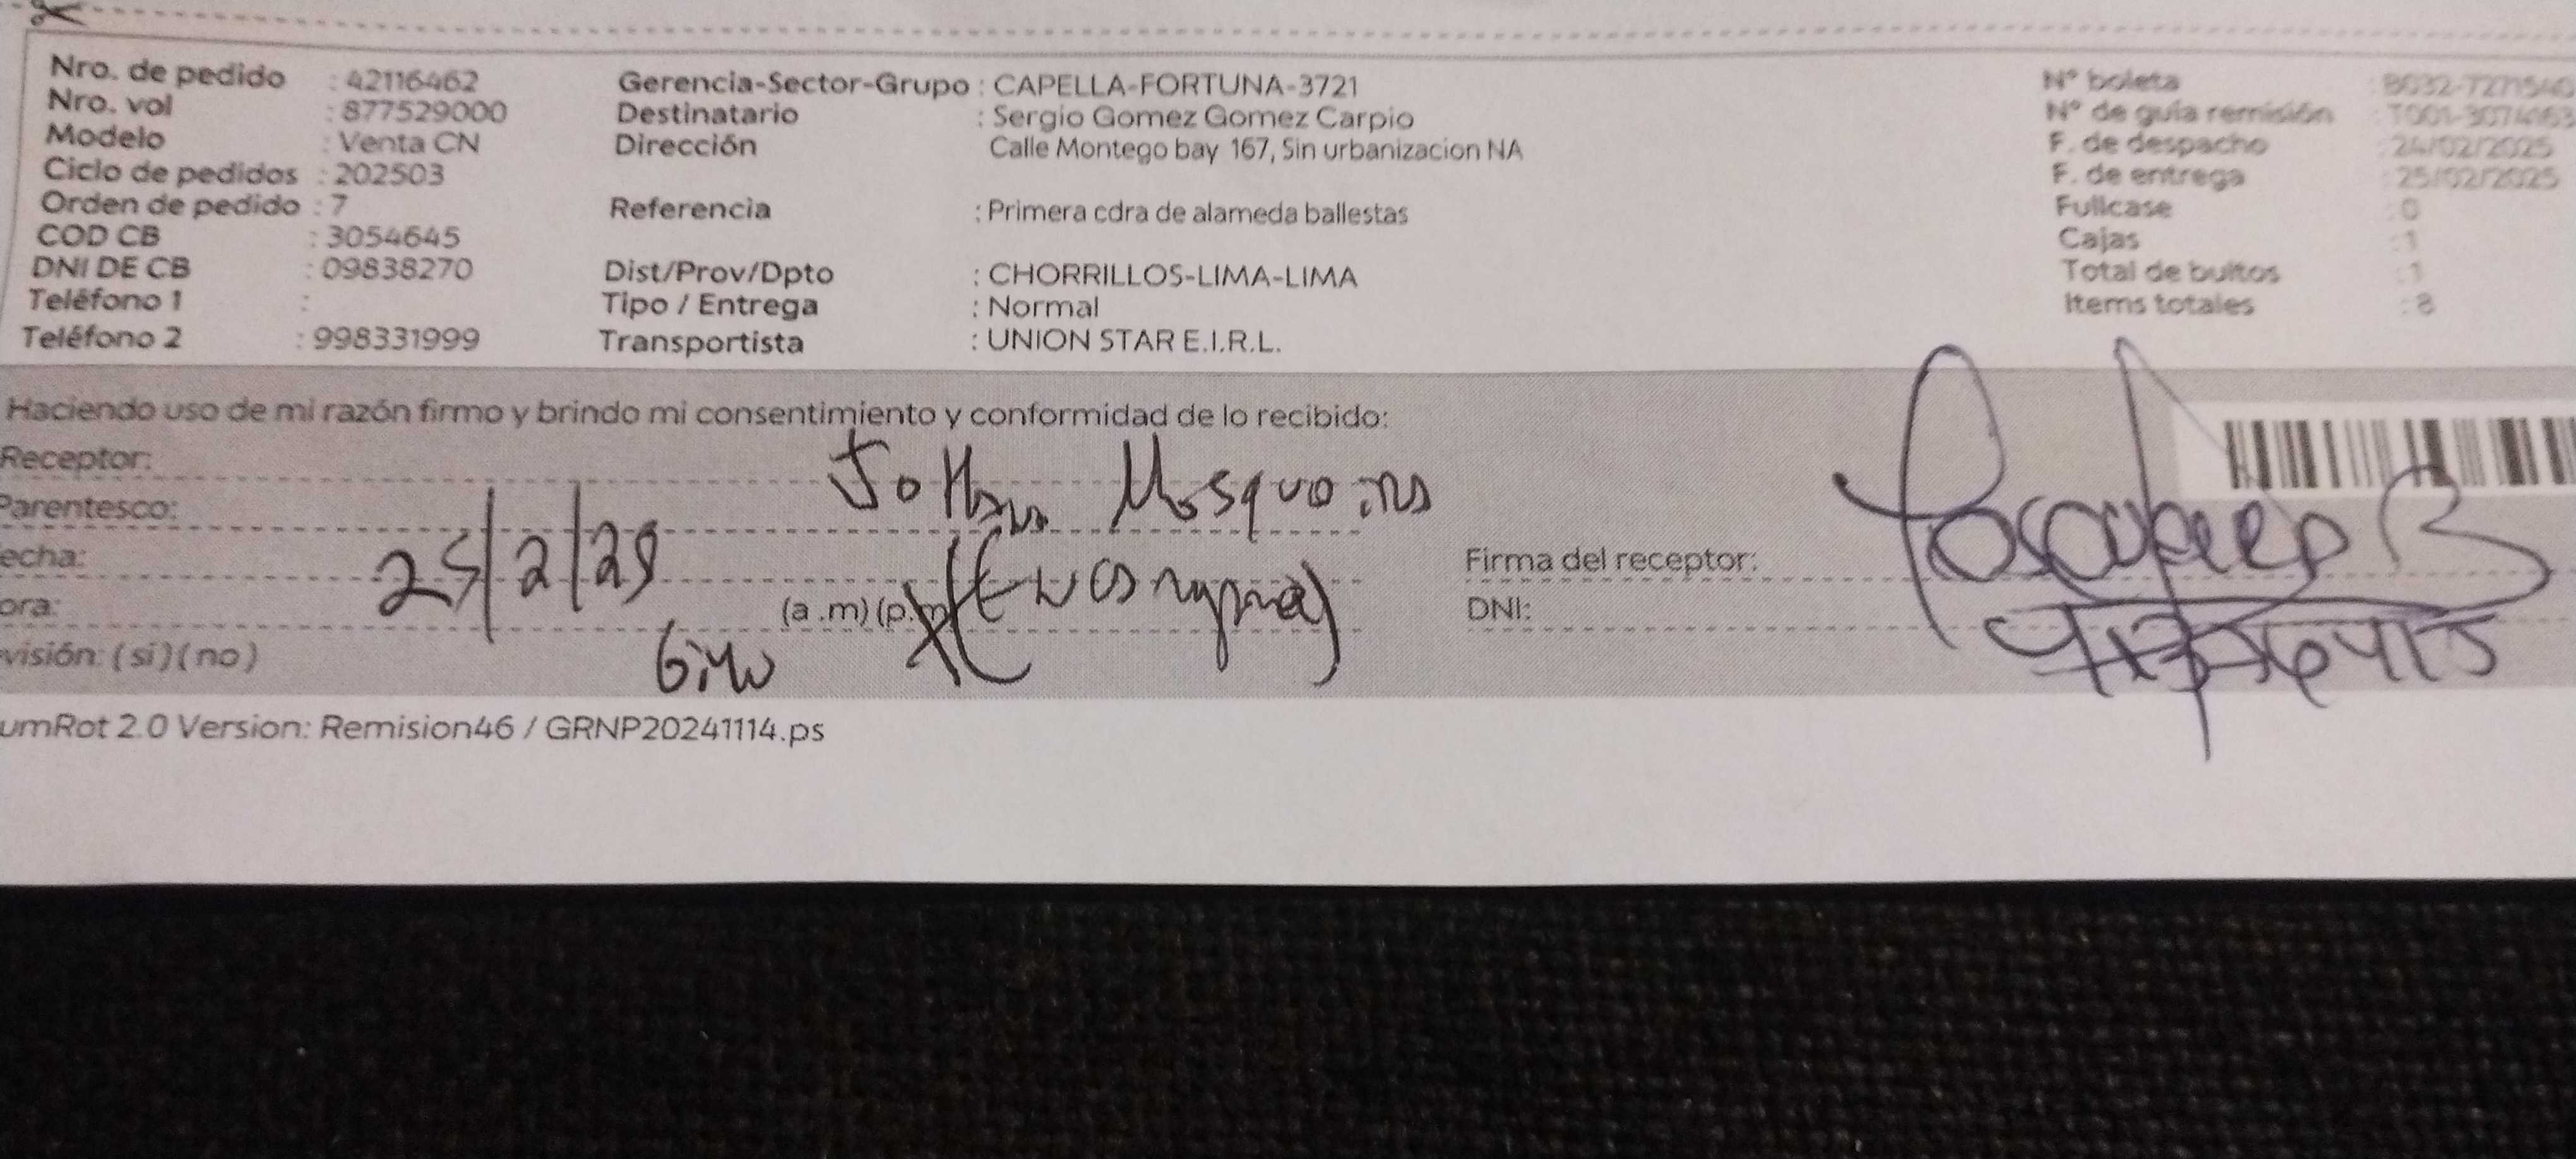 Nro. de pedido : 42116462 Gerencia-Sector-Grupo : CAPELLA-FORTUNA-3721 N° boleta
Nro. vol : 877529000 Destinatario : Sergio Gomez Gomez Carpio N° de guía remisión
Modelo : Venta CN Dirección Calle Montego bay 167, Sin urbanizacion NA F. de despacho : 24/02/2025
Ciclo de pedidos : 202503 F. de entrega : 25/02/2025
Orden de pedido : 7 Referencia : Primera cdra de alameda ballestas Fullcase : 0
COD CB : 3054645 Cajas : 1
DNI DE CB : 09838270 Dist/Prov/Dpto : CHORRILLOS-LIMA-LIMA Total de bultos : 1
Teléfono 1 : Tipo / Entrega : Normal Items totales : 8
Teléfono 2 : 998331999 Transportista : UNION STAR E.I.R.L.
Haciendo uso de mi razón firmo y brindo mi consentimiento y conformidad de lo recibido:
Receptor:
Parentesco:
echa: 25/2/25 Firma del receptor:
ora: (a .m) (p.m DNI:
visión: (si) (no)
umRot 2.0 Version: Remision46 / GRNP20241114.ps